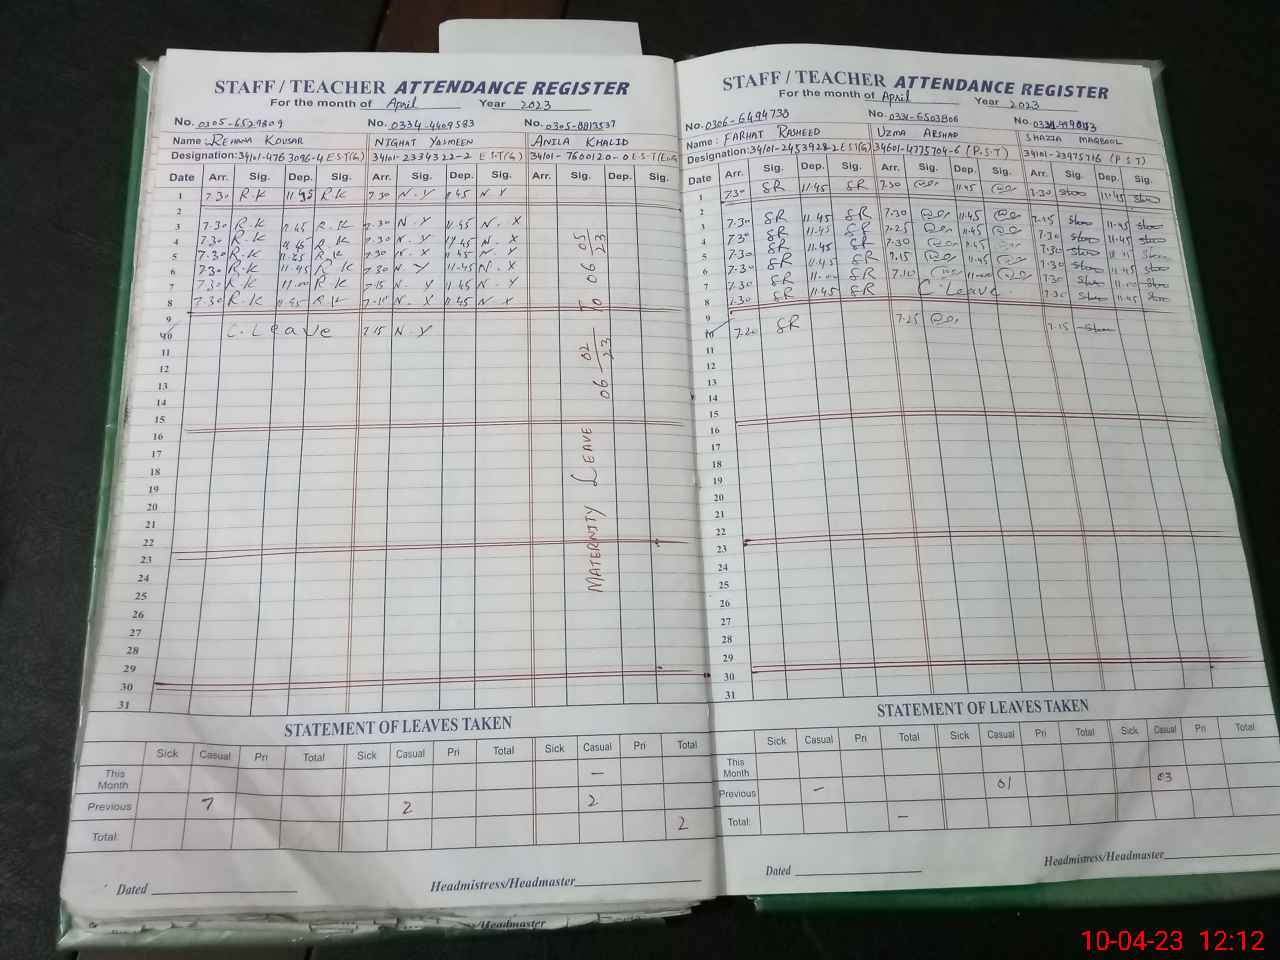 STAFF / TEACHER ATTENDANCE REGISTER
For the month of April Year 2023
No. 0305-6529809 No. 0334-4409583 No. 0305-8813537
Name: REHANA KOUSAR NIGHAT YASMEEN ANILA KHALID
Designation: 34101-4763096-4 E.S.T(G) 34101-2334322-2 E.S.T(G) 34101-7600120-0 E.S.T
Date Arr. Sig. Dep. Sig. Arr. Sig. Dep. Sig. Arr. Sig. Dep. Sig.
1 7.30 R.K 11.45 R.K 7.30 N.Y 11.45 N.Y
2
3 7.30 R.K 11.45 R.K 7.30 N.Y 11.45 N.Y
4 7.30 R.K 11.45 R.K 7.30 N.Y 11.45 N.Y
5 7.30 R.K 11.45 R.K 7.30 N.Y 11.45 N.Y
6 7.30 R.K 11.45 R.K 7.30 N.Y 11.45 N.Y
7 7.30 R.K 11.00 R.K 7.15 N.Y 11.45 N.Y
8 7.30 R.K 11.45 R.K 7.15 N.Y 11.45 N.Y
9
10 C.Leave 7.15 N.Y
11
12
13
14
15
16
17
18
19
20
21
22
23
24
25
26
27
28
29
30
31
MATERNITY LEAVE 06-02-23 TO 06 05 23
STATEMENT OF LEAVES TAKEN
Sick Casual Pri Total Sick Casual Pri Total Sick Casual Pri Total
This Month —
Previous 7 2 2
Total: 2
Dated Headmistress/Headmaster
/Headmaster
STAFF / TEACHER ATTENDANCE REGISTER
For the month of April Year 2023
No. 0306-6494738 No. 0331-6503806 No.
Name: FARHAT RASHEED UZMA ARSHAD SHAZIA MAQBOOL
Designation: 34101-2453928-2 EST(G) 34601-4775704-6 (P.S.T) 34101-23975716 (P.S.T)
Date Arr. Sig. Dep. Sig. Arr. Sig. Dep. Sig. Arr. Sig. Dep. Sig.
1 7.30 SR 11.45 SR 7.30 11.45 7.30 11.45
2
3 7.30 SR 11.45 SR 7.30 11.45 7.25 11.45
4 7.30 SR 11.45 SR 7.25 11.45 7.30 11.45
5 7.30 SR 11.45 SR 7.30 11.45 7.30
6 7.30 SR 11.45 SR 7.15 11.45 7.30 11.45
7 7.30 SR 11.00 SR 7.10 11.00 7.30 11.00
8 7.30 SR 11.45 SR C.Leave. 7.30 11.45
9
10 7.20 SR 7.25 7.15
11
12
13
14
15
16
17
18
19
20
21
22
23
24
25
26
27
28
29
30
31
STATEMENT OF LEAVES TAKEN
Sick Casual Pri Total Sick Casual Pri Total Sick Casual Pri Total
This Month
Previous — 01 03
Total: —
Dated Headmistress/Headmaster
10-04-23 12:12